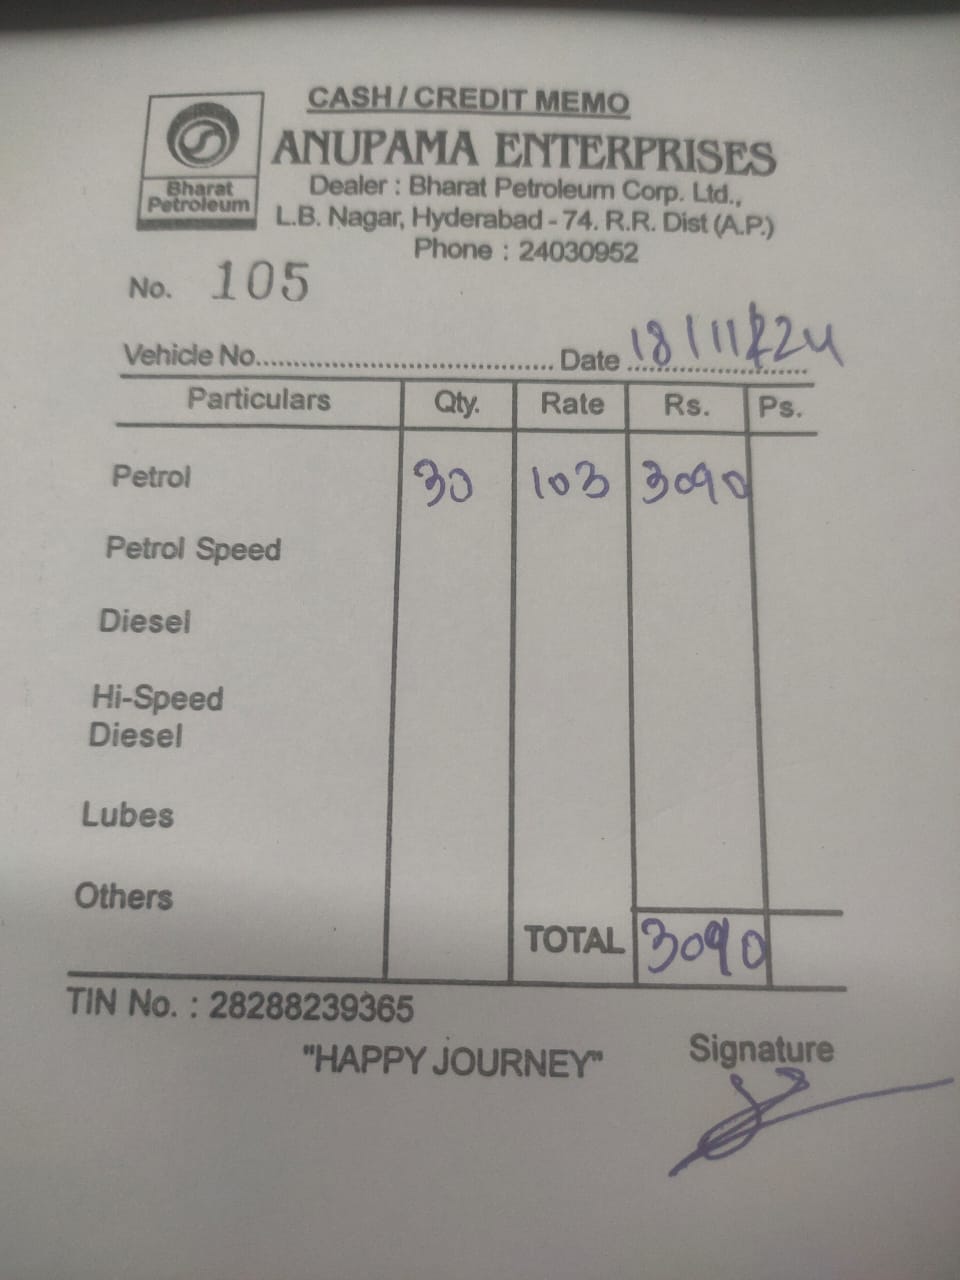 CASH / CREDIT MEMO
ANUPAMA ENTERPRISES
Bharat Petroleum
Dealer : Bharat Petroleum Corp. Ltd.,
L.B. Nagar, Hyderabad - 74. R.R. Dist (A.P.)
Phone : 24030952
No. 105
Vehicle No.................................... Date 18/11/24
Particulars Qty. Rate Rs. Ps.
Petrol 30 103 3090
Petrol Speed
Diesel
Hi-Speed
Diesel
Lubes
Others
TOTAL 3090
TIN No. : 28288239365
"HAPPY JOURNEY"
Signature